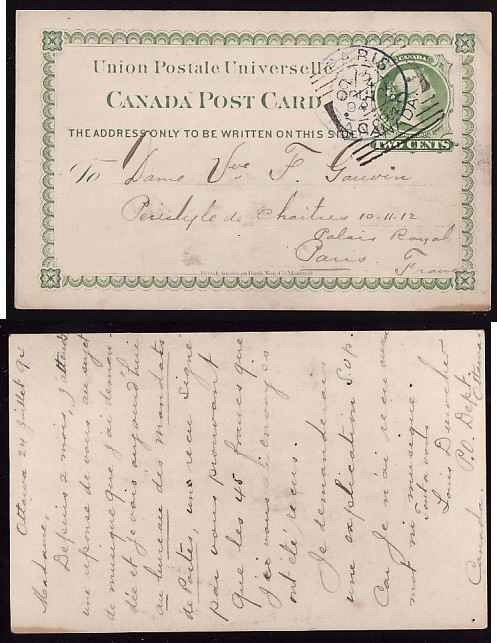 Union Postale Universelle
CANADA POST CARD
THE ADDRESS ONLY TO BE WRITTEN ON THIS SIDE
CANADA
TWO CENTS
PARIS
CANADA
To Dame Vve F. Gauvin
Peristyle de Chartres 10.11.12
Palais Royal
Paris. France
Ottawa 24 Juillet 92
Madame,
Depuis 2 mois, j'attends
une réponse de vous au sujet
de musique que j'ai deman-
dée et je vois aujourd'hui
au bureau des Mandats
de Postes, un reçu signé
par vous prouvant
que les 45 francs que
je vous ai envoyés
ont été reçus.
Je demanderais
une explication S.V.P.
Car je n'ai reçu ni
mot ni musique.
Tout à vous
Louis
P.O. Dept.
Ottawa
Canada.